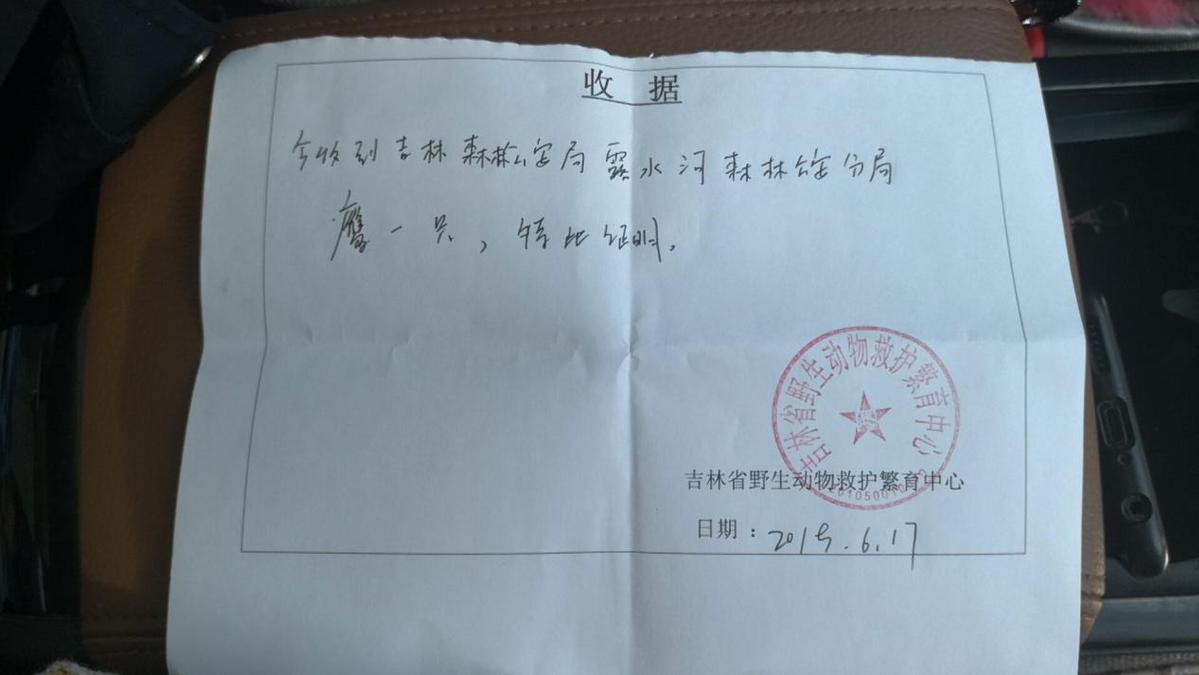 收 据
今收到吉林森林公安局露水河森林公安分局
鹰一只，特此证明。
吉林省野生动物救护繁育中心
吉林省野生动物救护繁育中心
日期：2019.6.17